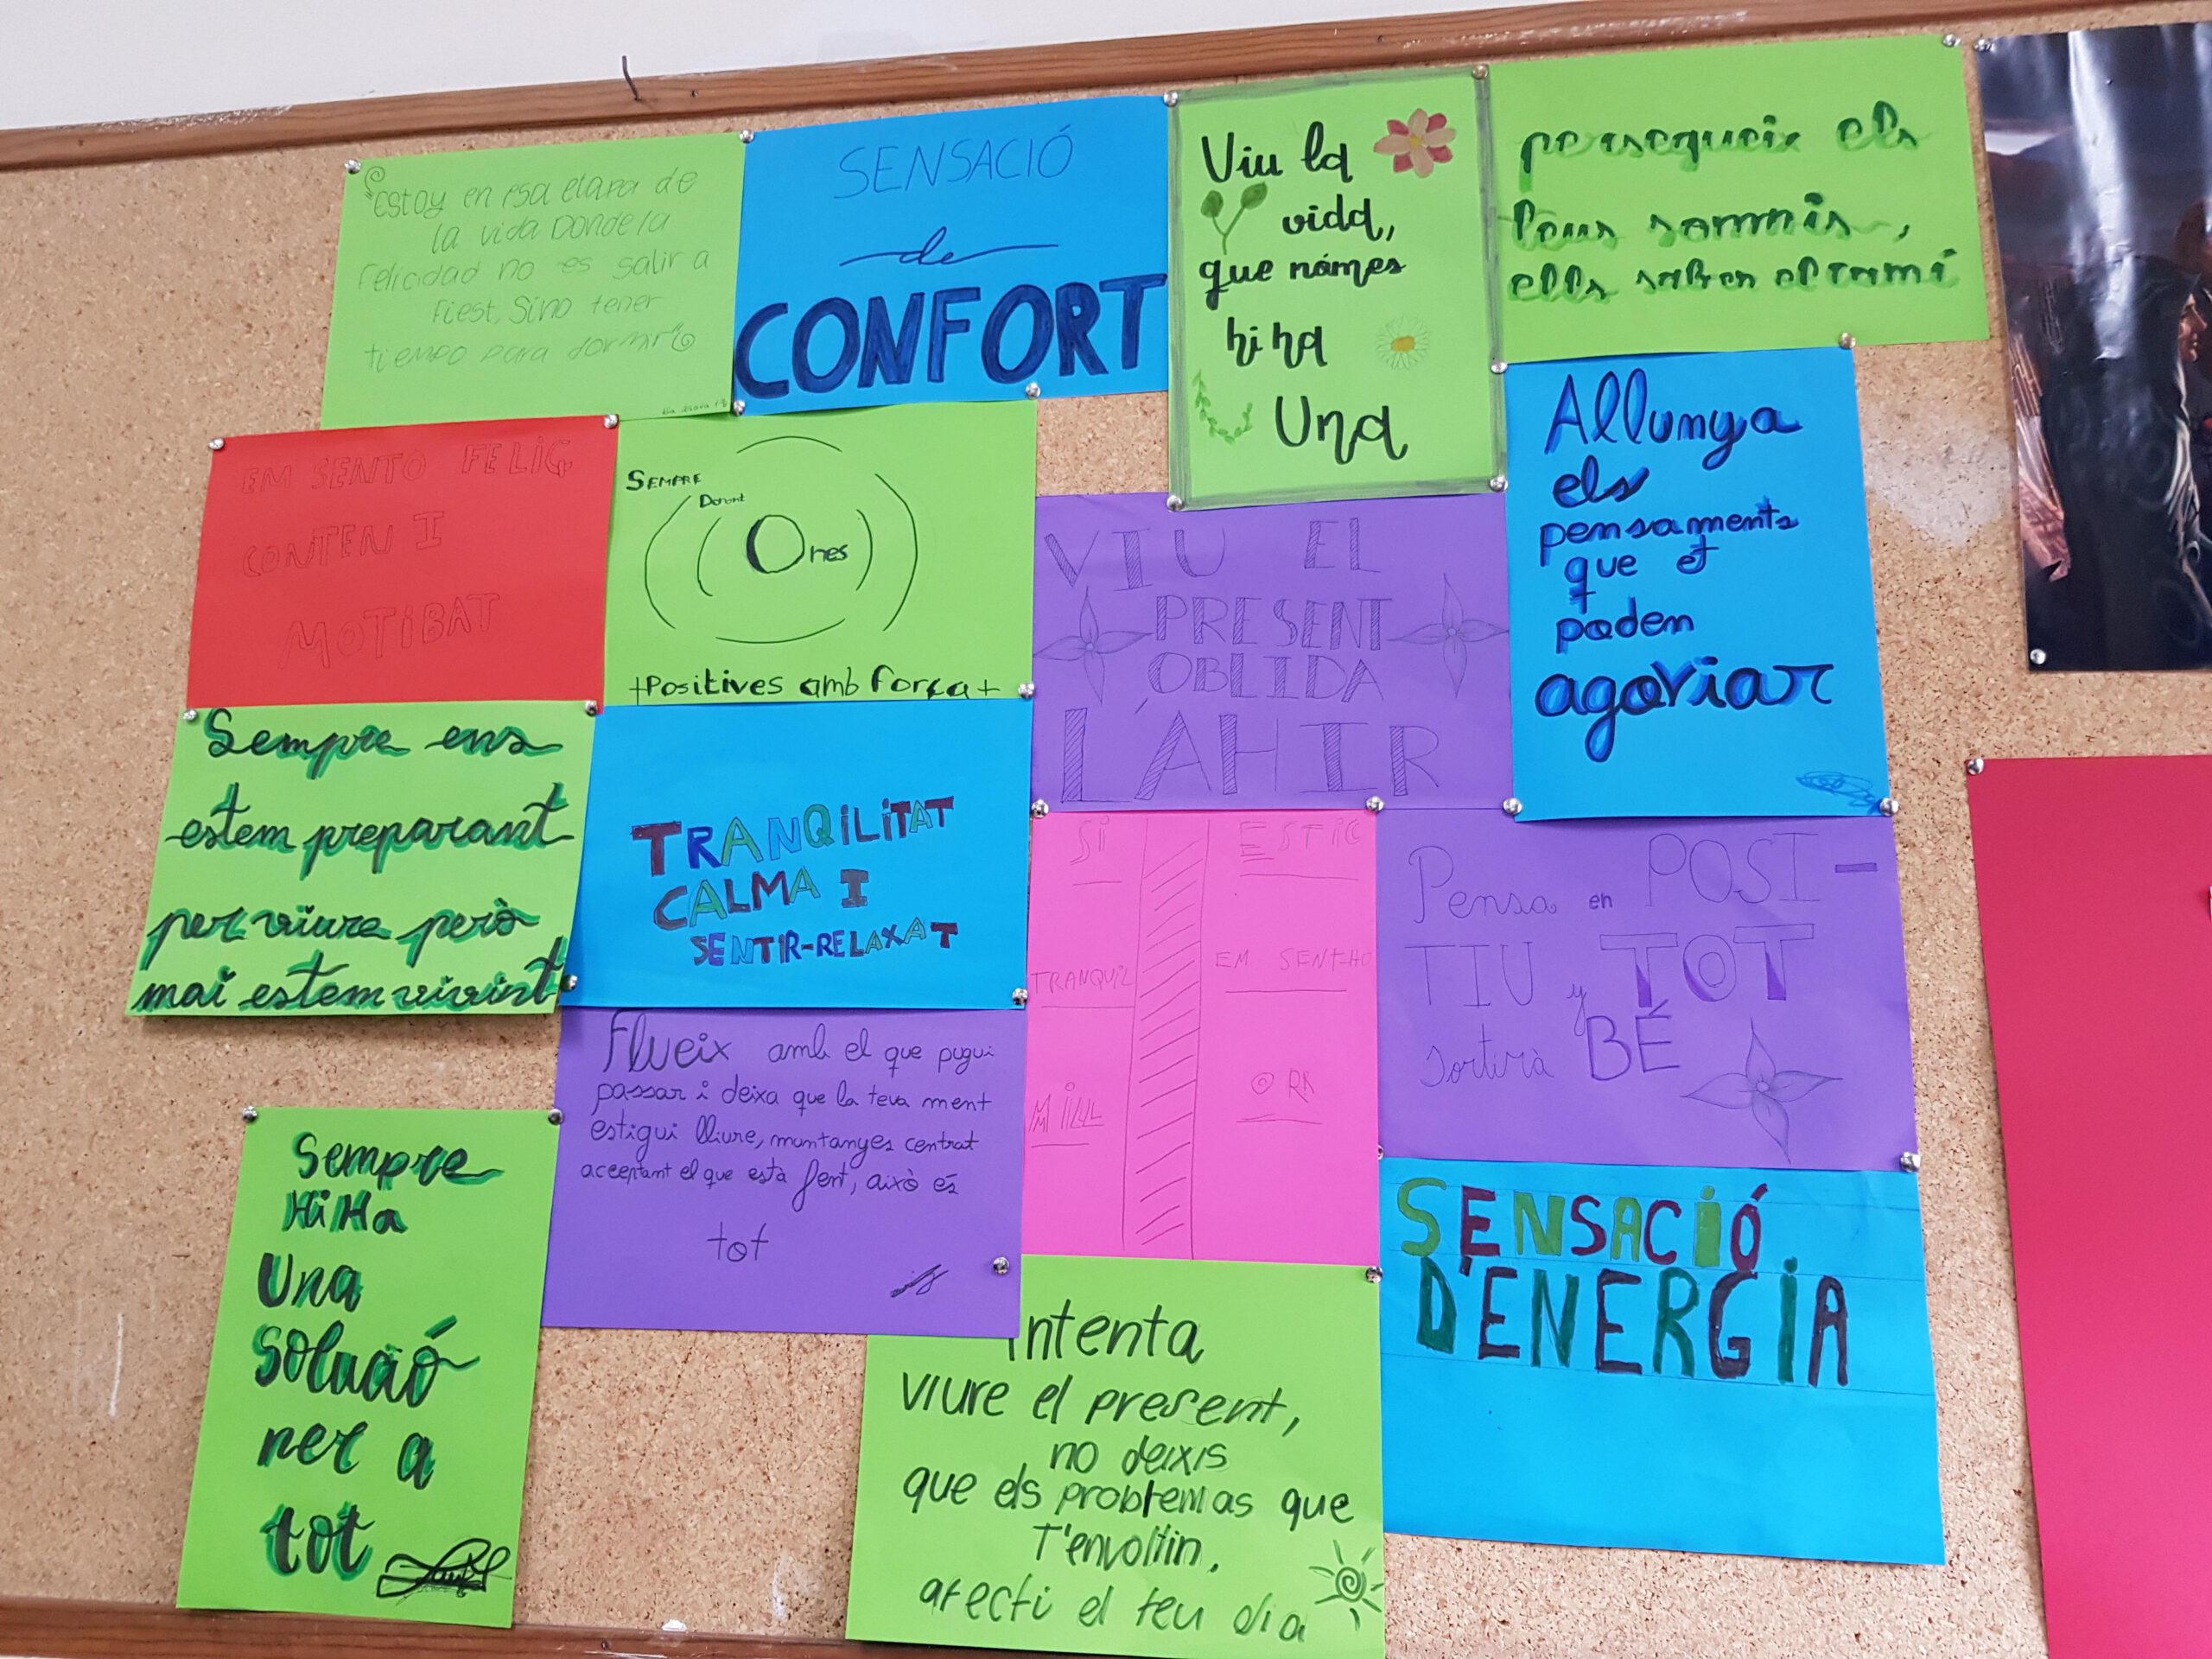 Estoy en esa etapa de
la vida Donde la
Felicidad no es salir a
Fiest, Sino tener
tiempo para dormir
SENSACIÓ
de
CONFORT
Viu la
vida,
que nómes
hi ha
Una
persegueix els
teus somnis,
ells saben el camí
EM SENTO FELIÇ
CONTEN I
MOTIBAT
SEMPRE
Donant
Ones
+Positives amb força+
VIU EL
PRESENT
OBLIDA
L'AHIR
Allunya
els
pensaments
que et
poden
agoviar
Sempre ens
estem preparant
per viure però
mai estem vivint
TRANQILITAT
CALMA I
SENTIR-RELAXAT
SI ESTIC
TRANQUIL EM SENTHO
MILL ORA
Pensa en POSI-
TIU y TOT
sortirà BÉ
Flueix amb el que pugui
passar i deixa que la teva ment
estigui lliure, muntanyes centrat
acceptant el que està fent, això és
tot
Sempre
Hi Ha
Una
Solució
per a
tot
intenta
viure el present,
no deixis
que els problemas que
T'envoltin,
afecti el teu dia
SENSACIÓ
D'ENERGIA